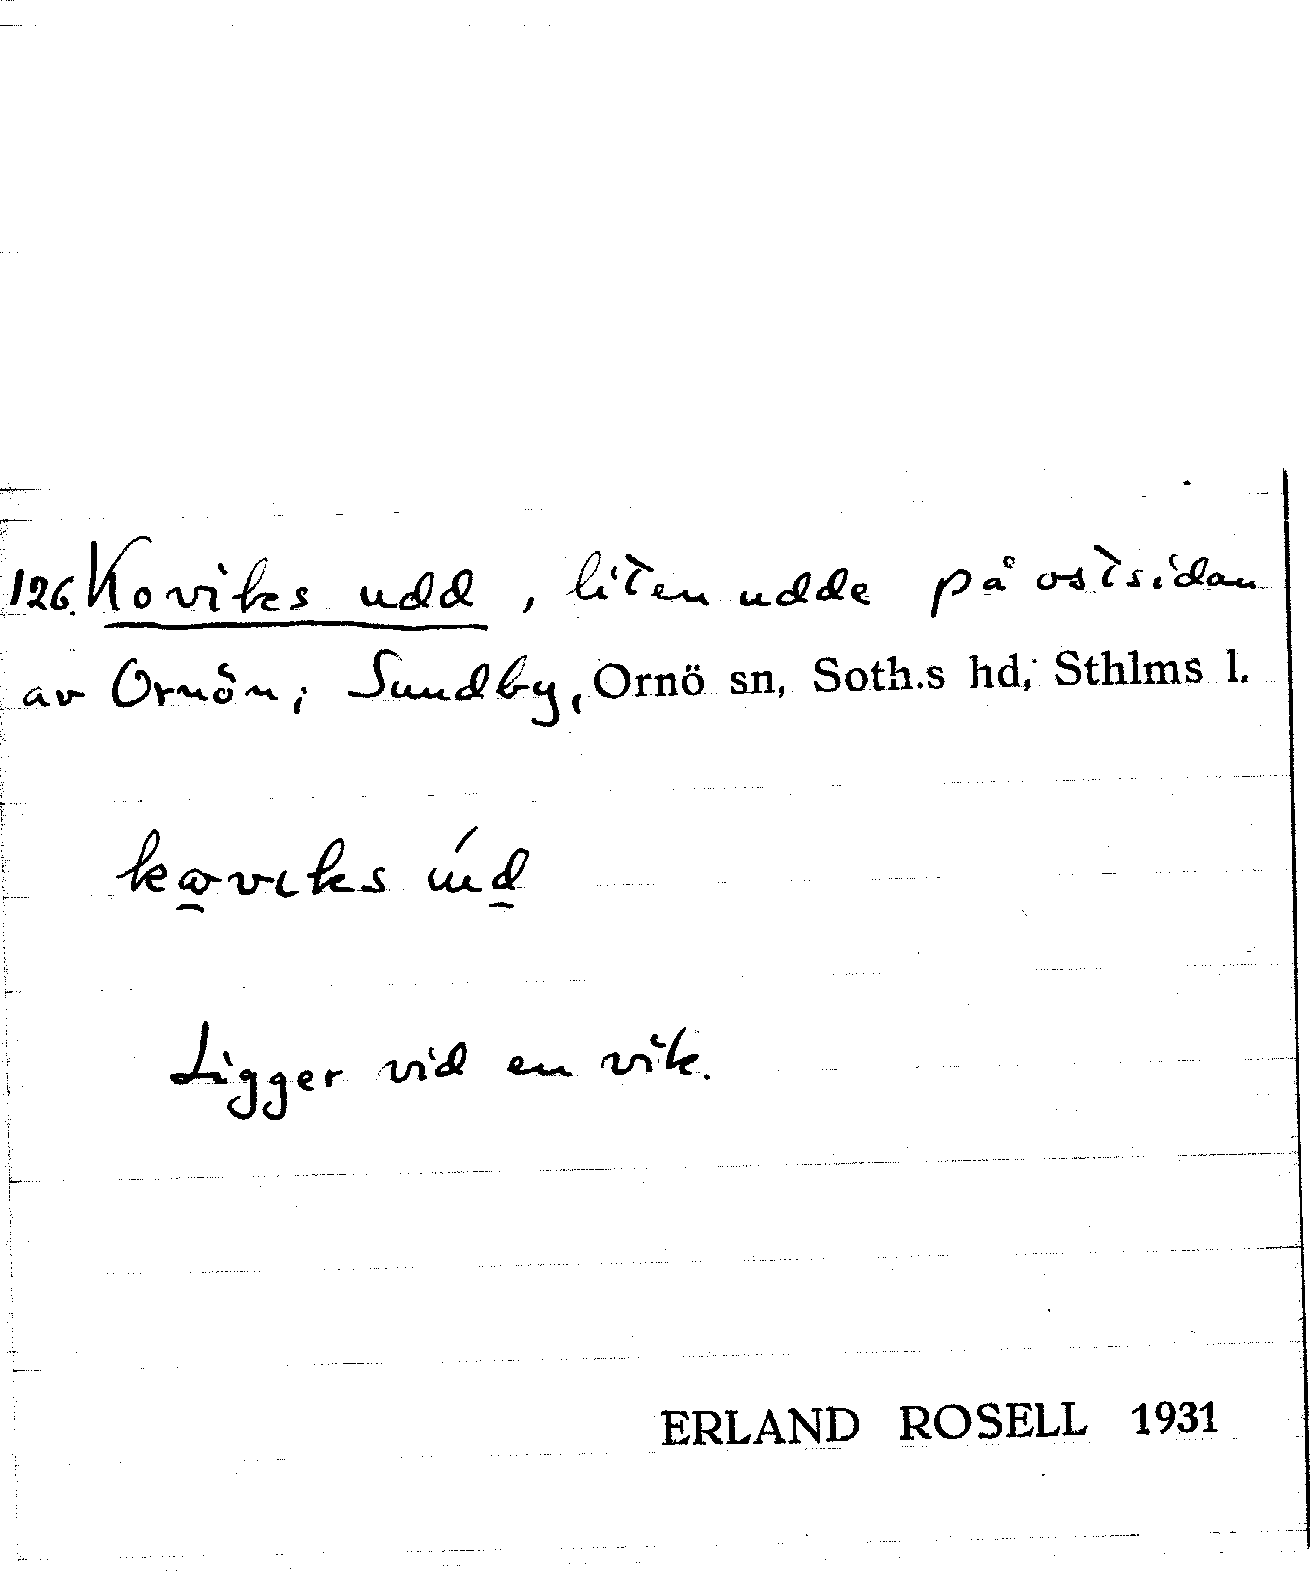 126. Koviks udd, liten udde på ostsidan
av Ornön; Sundby, Ornö sn, Soth.s hd, Sthlms l.
Ligger vid en vik.
ERLAND ROSELL 1931